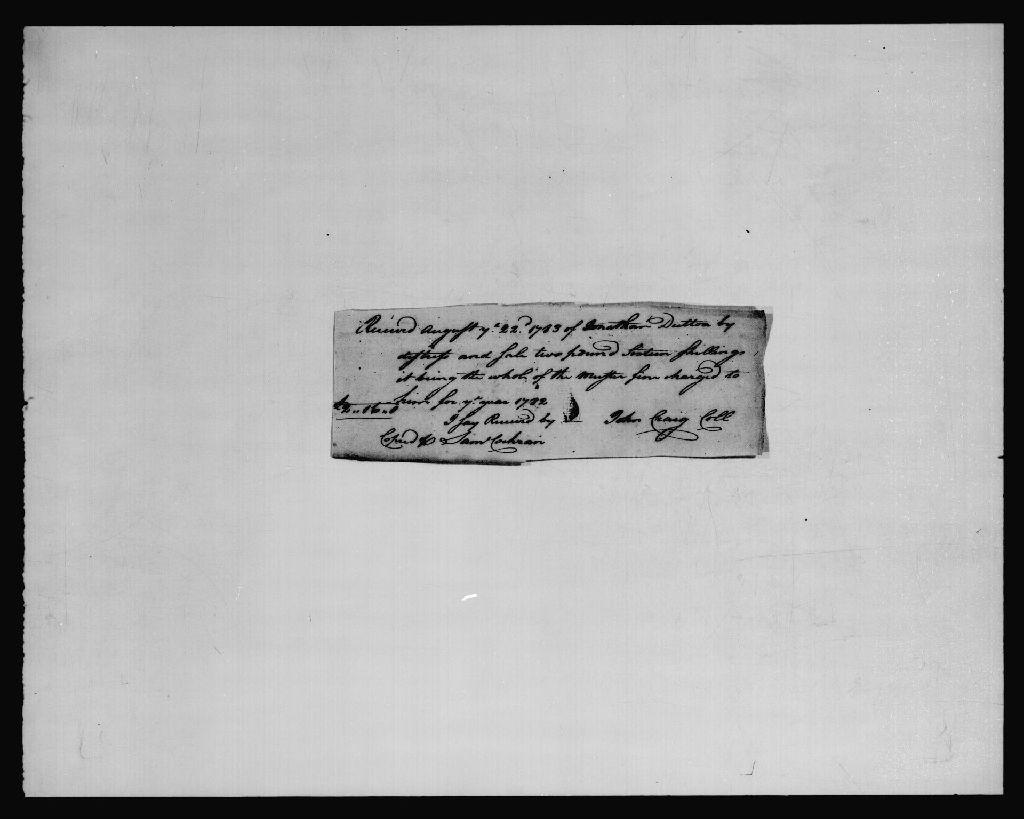 Received August ye 22d 1783 of Jonathan Dutton by
distress and sale two pound Sixteen shillings
it being the whole of the Muster fine charged to
him for ye year 1782
£2 " 16 " 0
I say Received by John Craig Coll
Copied by Saml Cochran